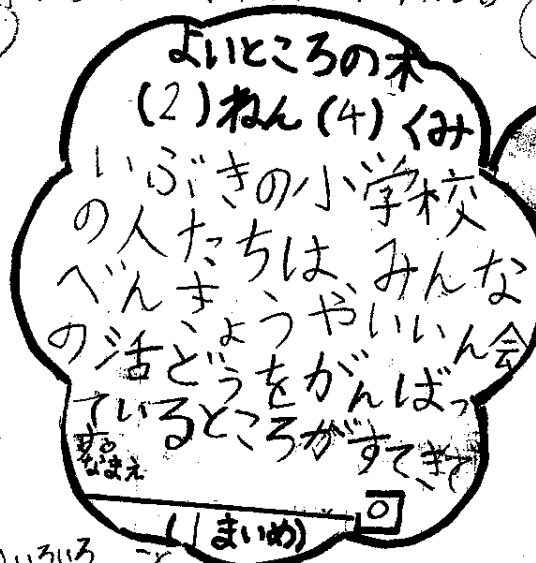 よいところの木
(2)ねん(4)くみ
いぶきの小学校
の人たちは、みんな
べんきょうやいいん会
の活どうをがんばっ
ているところがすてきで
する
なまえ
(1まいめ)
いろいろ